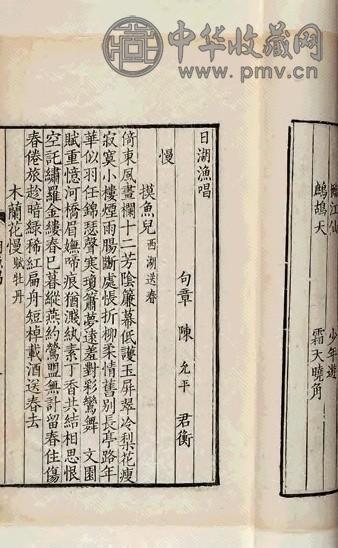 中华收藏网
www.pmv.cn
江仙 少年遊
鷓鴣天 霜天曉角
日湖漁唱
慢 句章 陳允平 君衡
摸魚兒 西湖送春
倚東風畫欄十二芳陰簾幕低護玉屏翠冷梨花瘦
寂寞小樓煙雨腸斷處悵折柳柔情舊別長亭路年
華似羽任錦瑟聲寒瓊簫夢遠羞對彩鸞舞 文園
賦重憶河橋眉嫵啼痕猶濺紈素丁香共結相思恨
空託繡羅金縷春已暮縱燕約鶯盟無計留春住傷
春倦旅趁暗綠稀紅扁舟短棹載酒送春去
木蘭花慢 賦牡丹